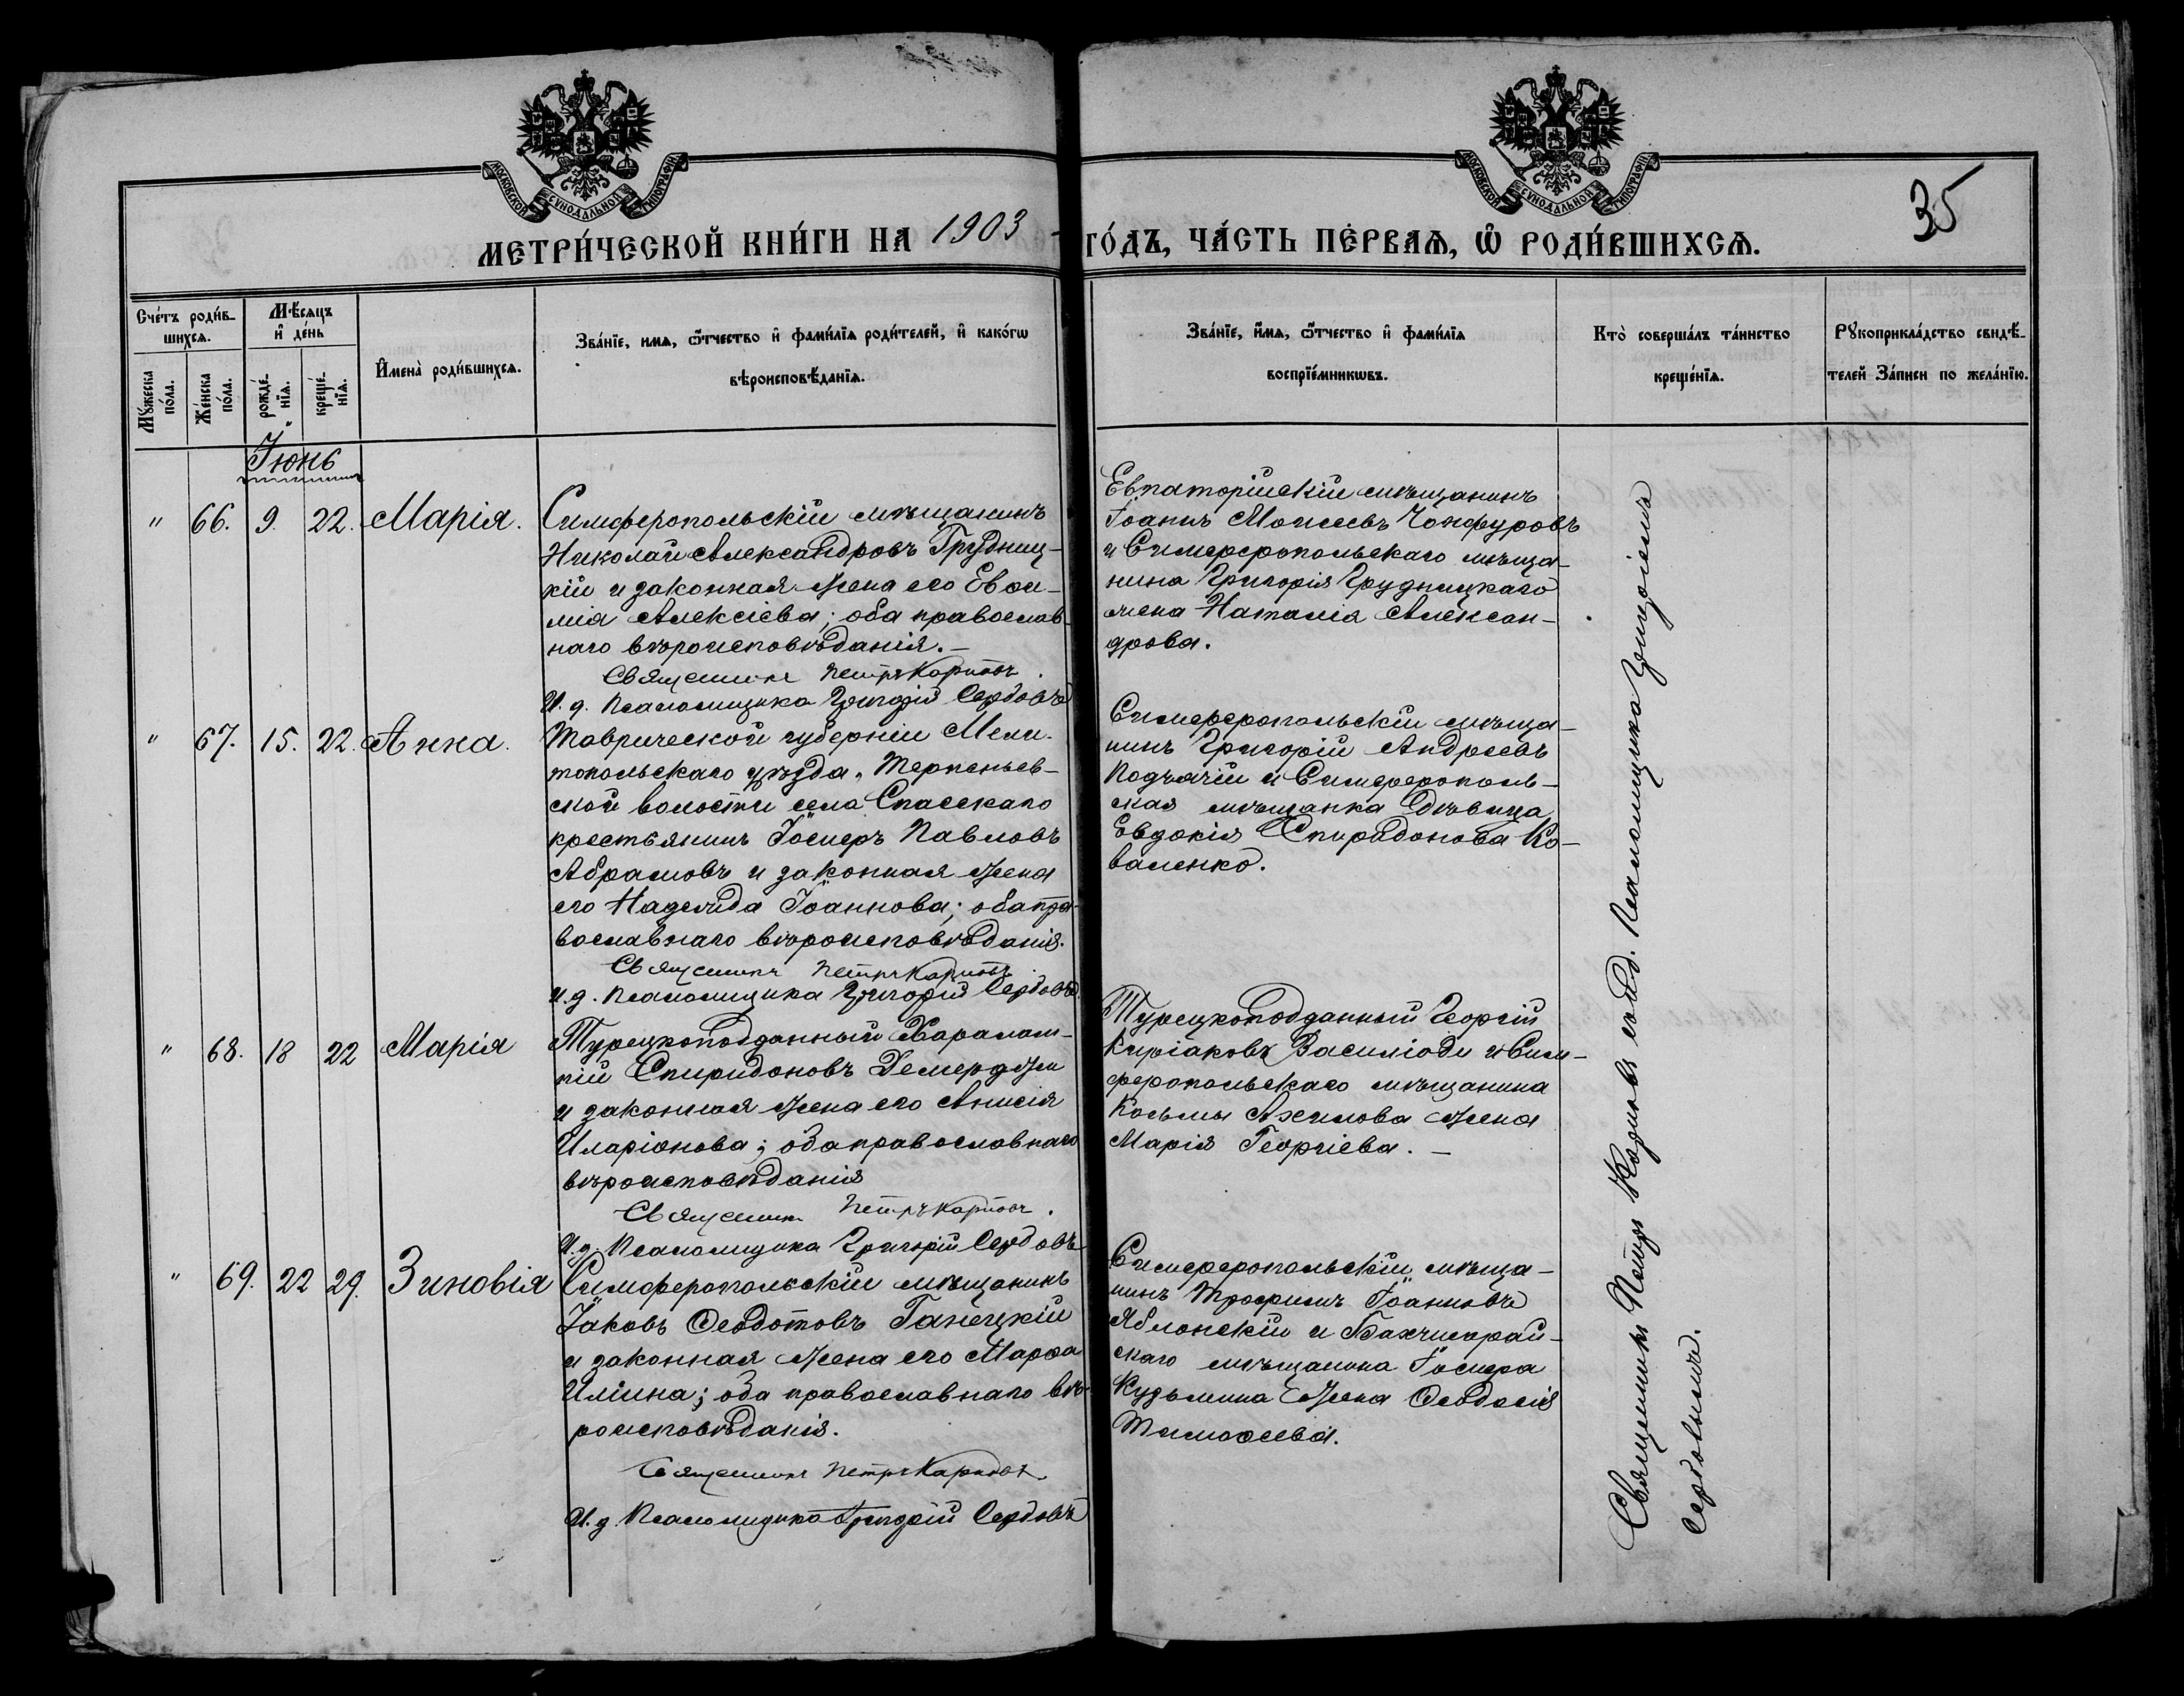 МОСКОВСКОЙ СѴНОДАЛЬНОЙ ТИПОГРАФІИ
МОСКОВСКОЙ СѴНОДАЛЬНОЙ ТИПОГРАФІИ
35
МЕТРИ́ЧЕСКОЙ КНИ́ГИ НА 1903 ГО́ДЪ, ЧА́СТЬ ПЕ́РВАѦ, Ѡ҆ РОДИ́ВШИХСѦ.
Сче́тъ роди́в-
шихсѧ.
Мꙋ́жеска
по́ла.
Же́нска
по́ла.
Мѣ́сѧцъ
и҆ де́нь
рожде́-
нїѧ.
креще́-
нїѧ.
И҆мена̀ роди́вшихсѧ.
Зва́нїе, имѧ, ѻ҆́тчество и҆ фами́лїѧ роди́телей, и҆ како́гѡ
вѣроисповѣ́данїѧ.
Зва́нїе, и҆́мѧ, ѻ҆́тчество и҆ фами́лїѧ
воспрїе́мникѡвъ.
Кто̀ соверша́лъ та́инство
креще́нїѧ.
Рꙋкоприкла́дство свидѣ́-
телей За́писи по жела́нїю.
Іюнь
" 66. 9. 22. Марія.
Симферопольскій мѣщанинъ
Николай Александровъ Грудниц-
кій и законная жена его Евѳи-
мія Алексіева; оба православ-
наго вѣроисповѣданія. –
Священникъ Петръ Карповъ.
И. д. Псаломщика Григорій Сербовъ
Евпаторійскій мѣщанинъ
Іоаннъ Моисеевъ Чонфуровъ
и Симферопольскаго мѣща-
нина Григорія Грудницкаго
жена Наталія Алексан-
дрова.
" 67. 15. 22. Анна.
Таврической губерніи Мели-
топольскаго уѣзда, Терпеньев-
ской волости села Спасскаго
крестьянинъ Іосифъ Павловъ
Абрамовъ и законная жена
его Надежда Іоаннова; оба пра-
вославнаго вѣроисповѣданія.
Священникъ Петръ Карповъ
И. д. Псаломщика Григорій Сербовъ
Симферопольскій мѣща-
нинъ Григорій Андреевъ
Подъячій и Симферополь-
ская мѣщанка дѣвица
Евдокія Спиридонова Ко-
валенко.
" 68. 18 22 Марія
Турецкоподданный Харалам-
пій Спиридоновъ Демерджи
и законная жена его Анисія
Иларіонова; оба православнаго
вѣроисповѣданія
Священникъ Петръ Карповъ.
И. д. Псаломщика Григорій Сербовъ
Турецкоподданный Георгій
Киріаковъ Василіади и Сим-
феропольскаго мѣщанина
Косьмы Ахилова жена
Марія Георгіева. –
" 69. 22 29. Зиновія
Симферопольскій мѣщанинъ
Іаковъ Ѳеодотовъ Ганецкій
и законная жена его Марѳа
Иліина; оба православнаго вѣ-
роисповѣданія.
Священникъ Петръ Карповъ
И. д. Псаломщика Григорій Сербовъ
Симферопольскій мѣща-
нинъ Трофимъ Іоанновъ
Яблонскій и Бахчисарай-
скаго мѣщанина Іосифа
Кузьмина жена Ѳеодосія
Тимоѳеева.
Священникъ Петръ Карповъ съ и. д. Псаломщика Григоріемъ
Сербовымъ.